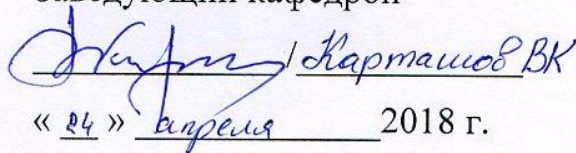 Заведующий кафедрой
/ Карташов ВК
« 24 » апреля 2018 г.